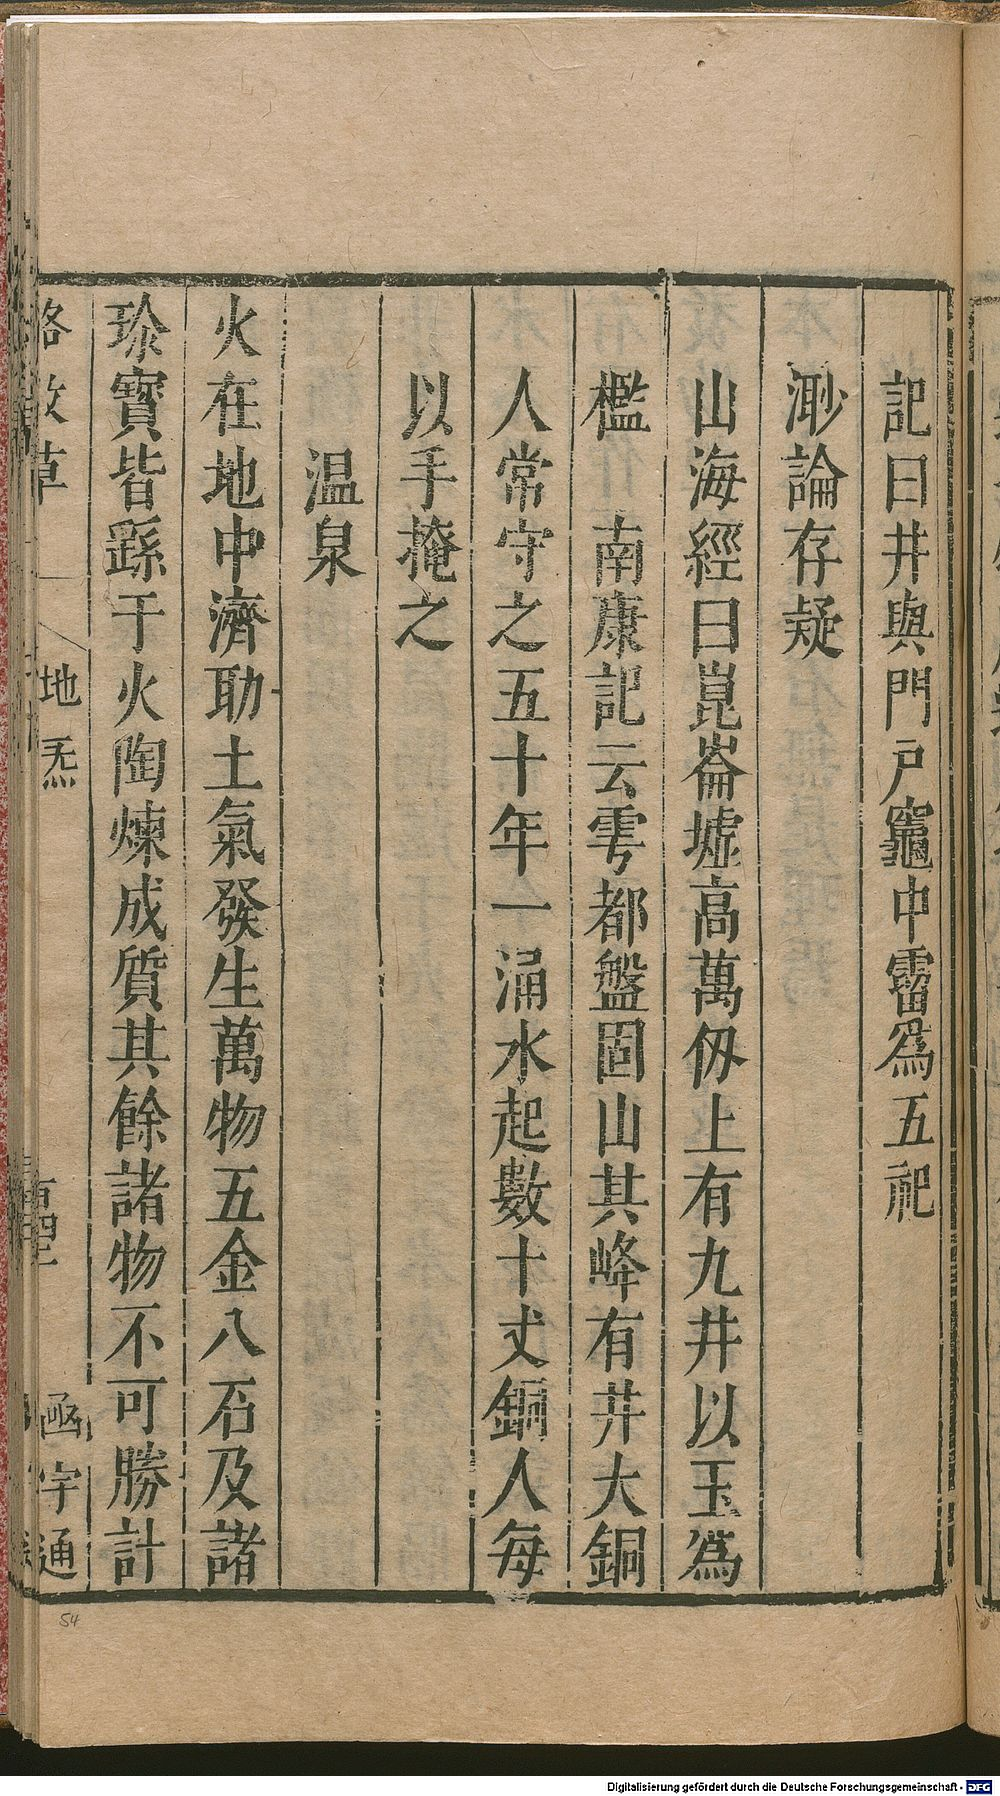 記曰井與門戶竈中霤爲五祀
渺論存疑
山海經曰崑崙墟高萬仭上有九井以玉爲
檻　南康記云雩都盤固山其峰有井大銅
人常守之五十年一涌水起數十丈銅人每
以手掩之
溫泉
火在地中濟助土氣發生萬物五金八石及諸
珍寶皆繇于火陶煉成質其餘諸物不可勝計
格致草
地炁
函宇通
54
Digitalisierung gefördert durch die Deutsche Forschungsgemeinschaft - DFG